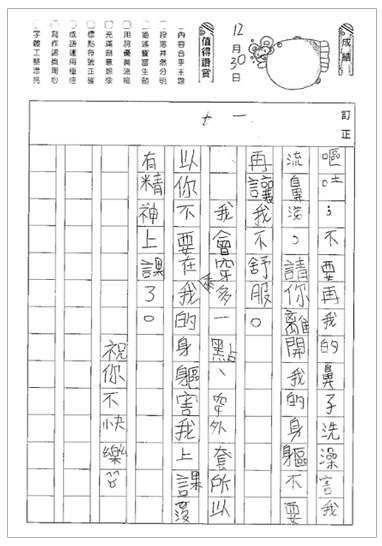 成績
12月30日
值得讚賞
□內容合乎主題
□段落井然分明
□描述豐富生動
□用詞優美流暢
□充滿創意想像
□標點符號正確
□成語運用極佳
□寫作認真用心
□字體工整漂亮
訂正
十一
嘔吐；不要再我的鼻子洗澡害我
流鼻涕。請你離開我的身軀不要
再讓我不舒服。
我會穿多一點、穿外套所以
以你不要在我的身軀害我上課沒
有精神上課了。
祝你不快樂